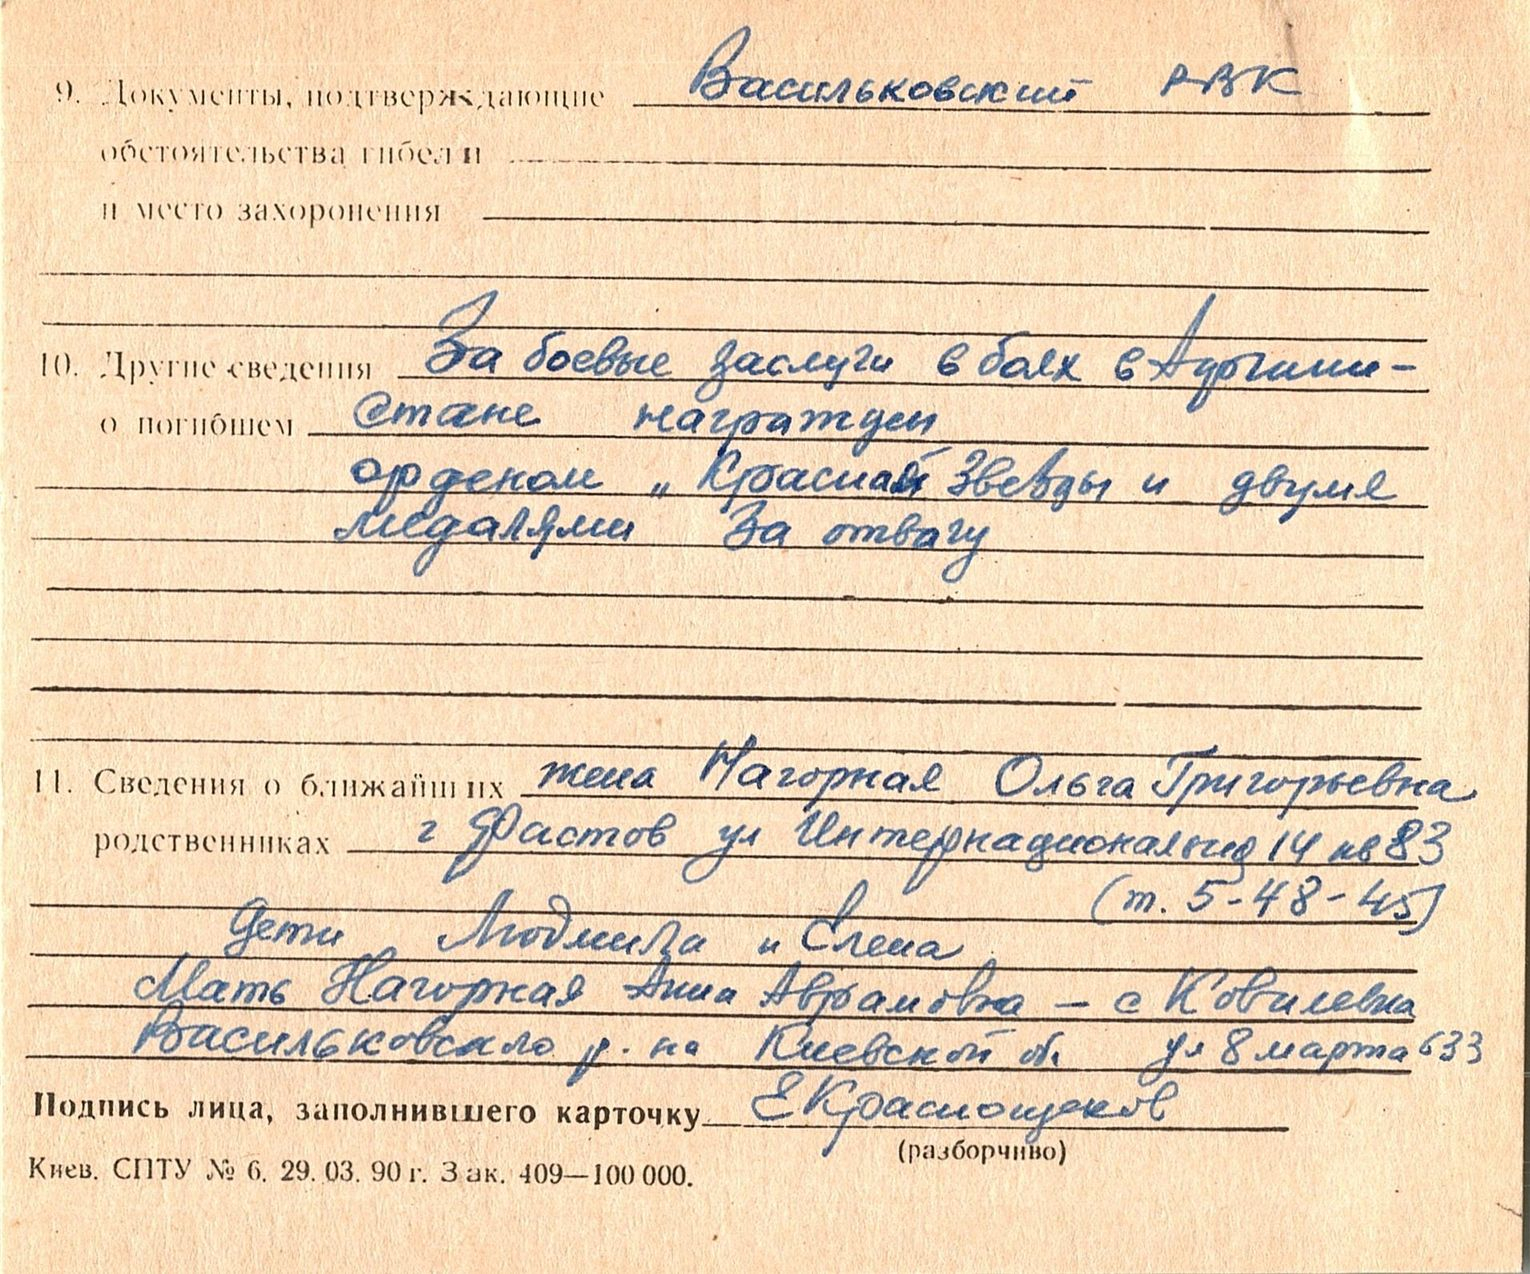 9. Документы, подтверждающие Васильковский РВК
обстоятельства гибели
и место захоронения
10. Другие сведения За боевые заслуги в боях в Афгани-
о погибшем стане награжден
орденом „ Красной Звезды и двумя
медалями За отвагу
11. Сведения о ближайших жена Нагорная Ольга Григорьевна
родственниках г Фастов ул Интернациональная 14 кв 83
(т. 5-48-45)
Дети Людмила и Елена
Мать Нагорная Анна Аврамовна – с Ковилевка
Васильковского р-на Киевской об. ул 8 марта 633
Подпись лица, заполнившего карточку ЕКраснощеков
(разборчиво)
Киев. СПТУ № 6. 29. 03. 90 г. Зак. 409—100 000.